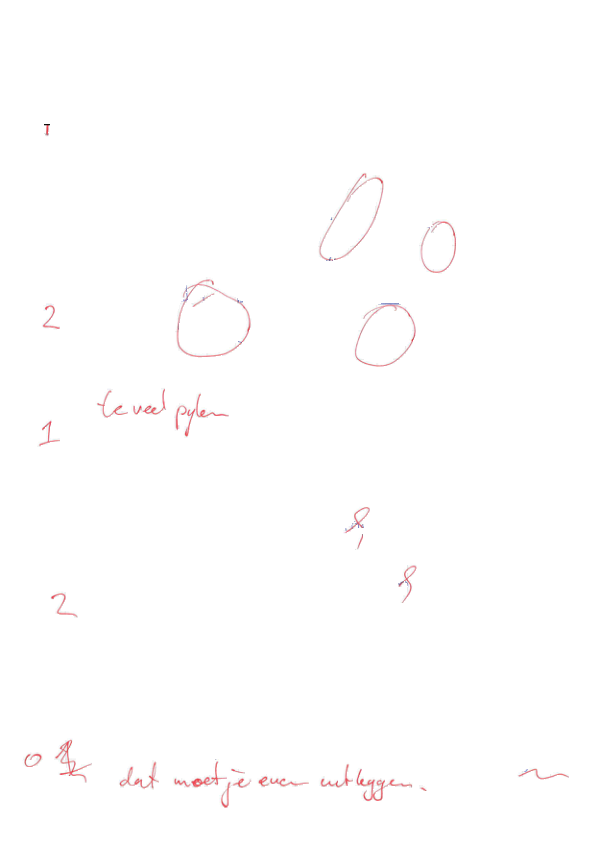 T
2
te veel pylen
1
2
0 dat moet je even uitleggen.